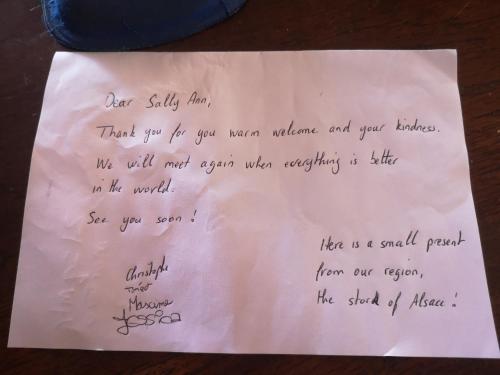 Dear Sally Ann,
Thank you for you warm welcome and your kindness.
We will meet again when everything is better
in the world.
See you soon!
Christophe
Maxime
Jessica
Here is a small present
from our region,
the stork of Alsace!